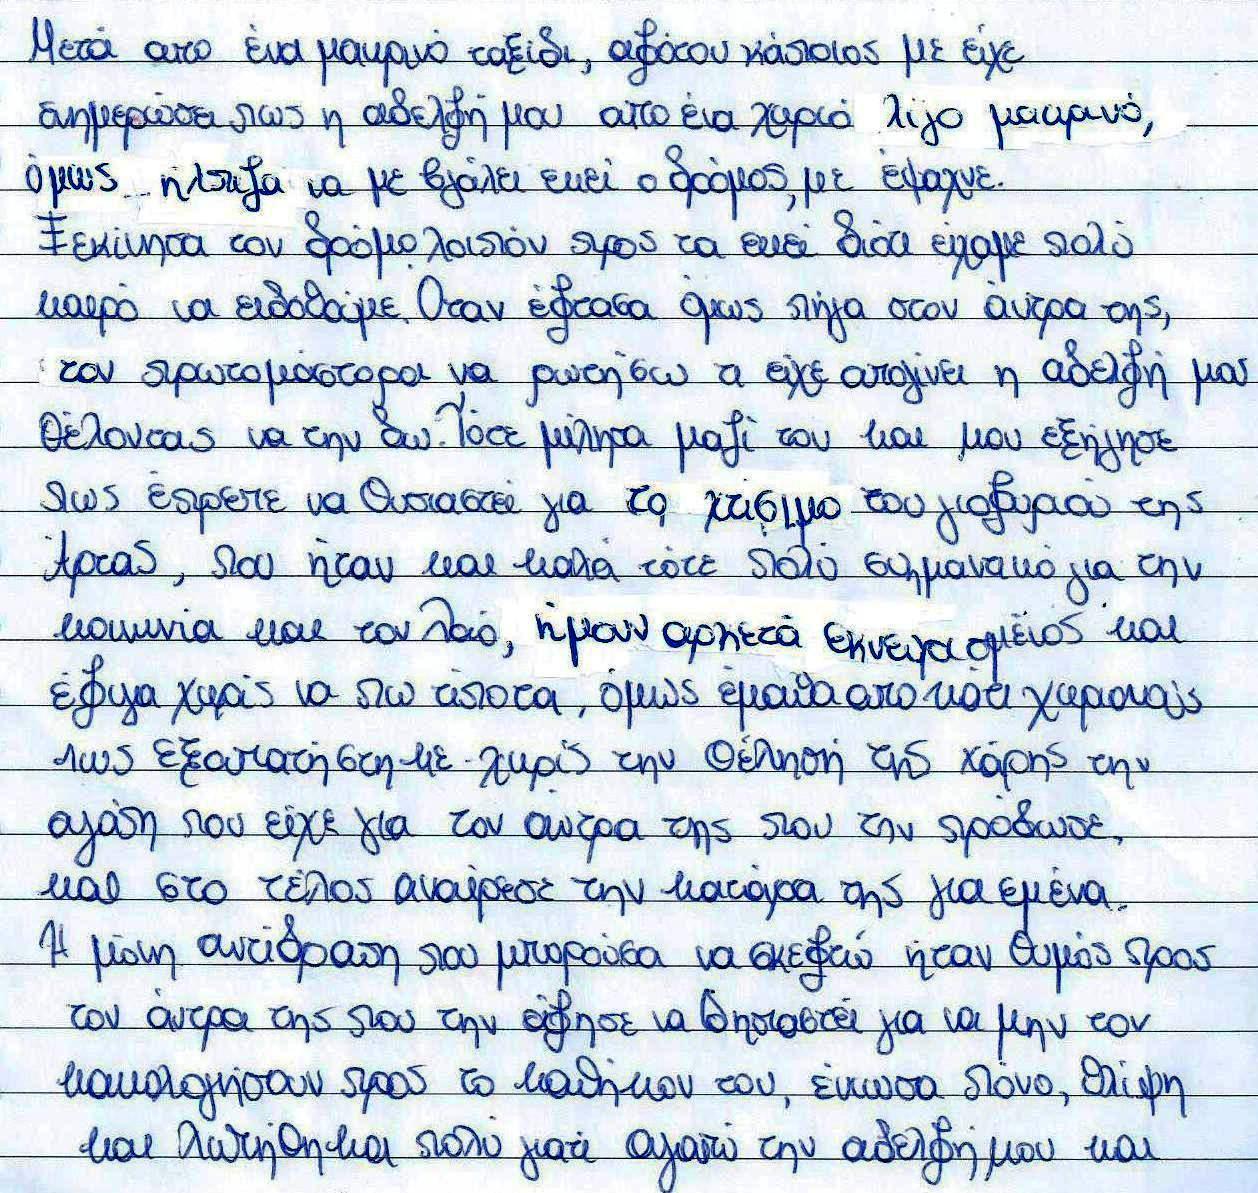 Μετά απο ένα μακρινό ταξίδι, αφότου κάποιος με είχε
ενημερώσει πως η αδελφή μου απο ένα χωριό λίγο μακρινό,
όμως ήλπιζα να με βγάλει εκεί ο δρόμος, με έψαχνε.
Ξεκίνησα τον δρόμο λοιπόν προς τα εκεί διότι είχαμε πολύ
καιρό να ειδοθούμε. Οταν έφτασα όμως πήγα στον άντρα της,
τον πρωτομάστορα να ρωτήσω τι είχε απογίνει η αδελφή μου
θέλοντας να την δω. Τότε μίλησα μαζί του και μου εξήγησε
πως έπρεπε να θυσιαστεί για το χτίσιμο του γιοφυριού της
Άρτας, που ήταν και καλά τότε πολύ σημαντικό για την
κοινωνία και τον λαό, ήμουν αρκετά εκνευρισμένος και
έφυγα χωρίς να πω τίποτα, όμως έμαθα απο κάτι χωριανούς
πως εξαπατήστηκε χωρίς την θέλησή της χάρης την
αγάπη που είχε για τον άντρα της που την πρόδωσε.
και στο τέλος αναίρεσε την κατάρα της για εμένα.
Η μόνη αντίδραση που μπορούσα να σκεφτώ ήταν θυμός προς
τον άντρα της που την άφησε να θησιαστεί για να μην τον
κακολογήσουν προς το καθήκον του, ένιωσα πόνο, θλίψη
και λυπήθηκα πολύ γιατί αγαπώ την αδελφή μου και